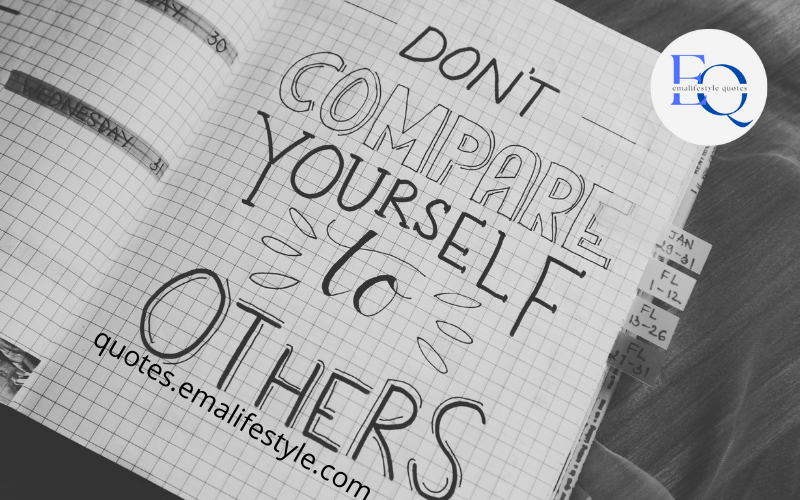 DAY 30
WEDNESDAY 31
DON'T
COMPARE
YOURSELF
to
OTHERS
quotes.emalifestyle.com
EQ
emalifestyle quotes
JAN
29-31
FL
1-12
FL
13-26
FL
27-31